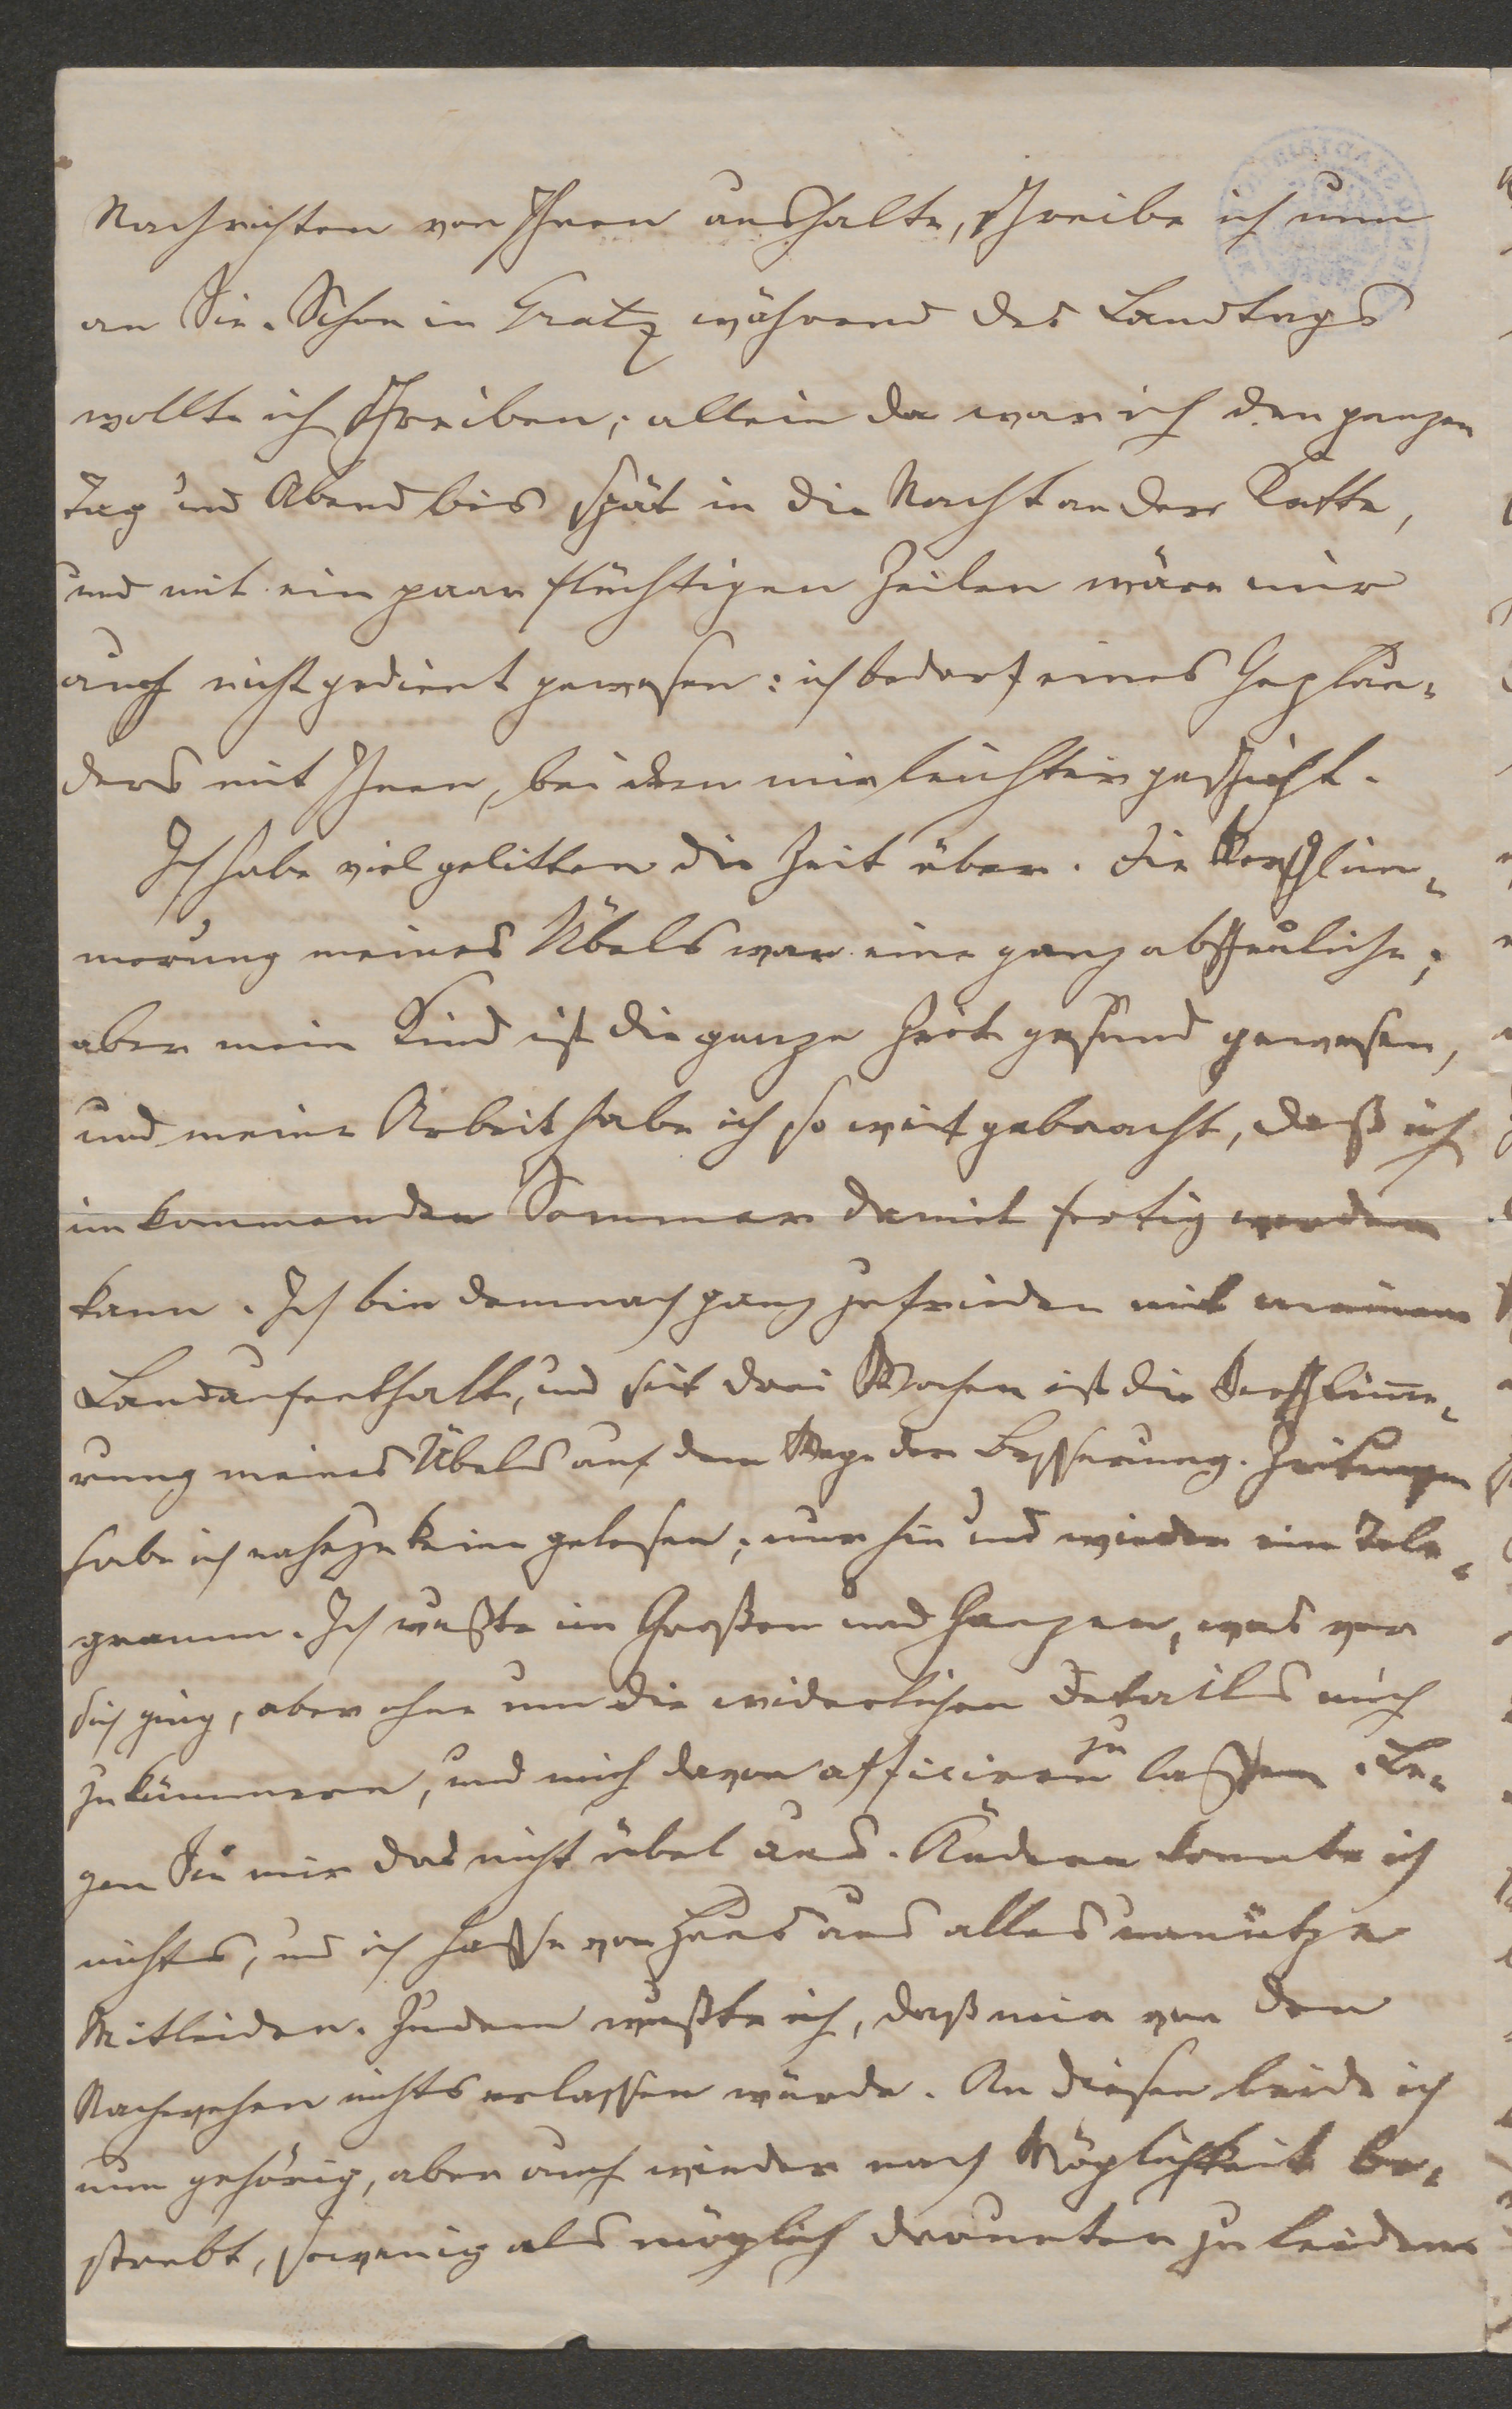 Nachrichten von Ihnen aushalte, schreibe ich nun
an Sie. Schon in Gratz während des Landtags
wollte ich schreiben; allein da war ich den ganzen
Tag und Abend bis spät in die Nacht an der Kette,
und mit ein paar flüchtigen Zeilen wäre mir
auch nicht gedient gewesen: ich bedarf eines Geplau-
ders mit Ihnen, bei dem mir leichter geschieht.
Ich habe viel gelitten die Zeit über. Die Verschlim-
merung meines Übels war eine ganz abscheuliche;
aber mein Kind ist die ganze Zeit gesund gewesen,
und meine Arbeit habe ich so weit gebracht, daß ich
im kommenden Sommer damit fertig werden
kann. Ich bin demnach ganz zufrieden mit meinem
Landaufenthalt, und seit drei Wochen ist die Verschlimme-
rung meines Übels auf dem Wege der Besserung. Zeitungen
habe ich nahezu keine gelesen; nur hin und wieder ein Tele-
gramm. Ich wußte im Großen und Ganzen, was vor
sich ging, aber ohne um die widerlichen Details mich
zu kümmern, und mich davon afficiren zu lassen. Le-
gen Sie mir das nicht übel aus. Ändern konnte ich
nichts, und ich hasse von Haus aus alles unnütze
Mitleiden. Zudem wußte ich, daß mir von den
Nachwehen nichts erlassen würde. An diesen leide ich
nun gehörig, aber auch wieder nach Möglichkeit be-
strebt, sowenig als möglich darunter zu leiden